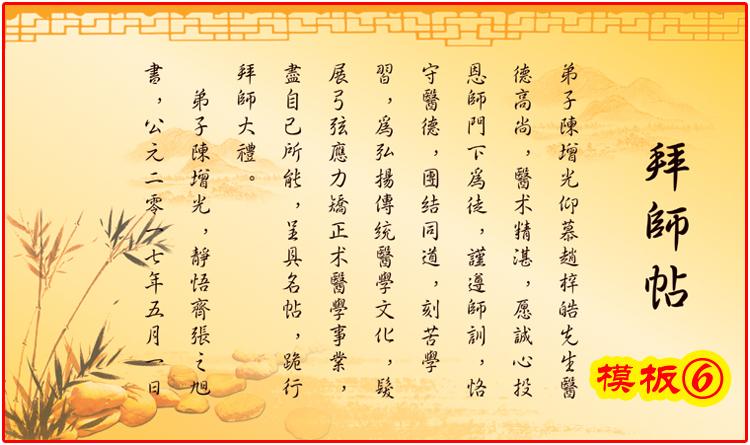 拜師帖
弟子陳增光仰慕趙梓皓先生醫
德高尚，醫术精湛，愿誠心投
恩師門下爲徒，謹遵師訓，恪
守醫德，團结同道，刻苦學
習，爲弘揚傳統醫學文化，髮
展弓弦應力矯正术醫學事業，
盡自己所能，呈具名帖，跪行
拜師大禮。
弟子陳增光，靜悟齊張之旭
書，公元二零一七年五月一日
模板⑥